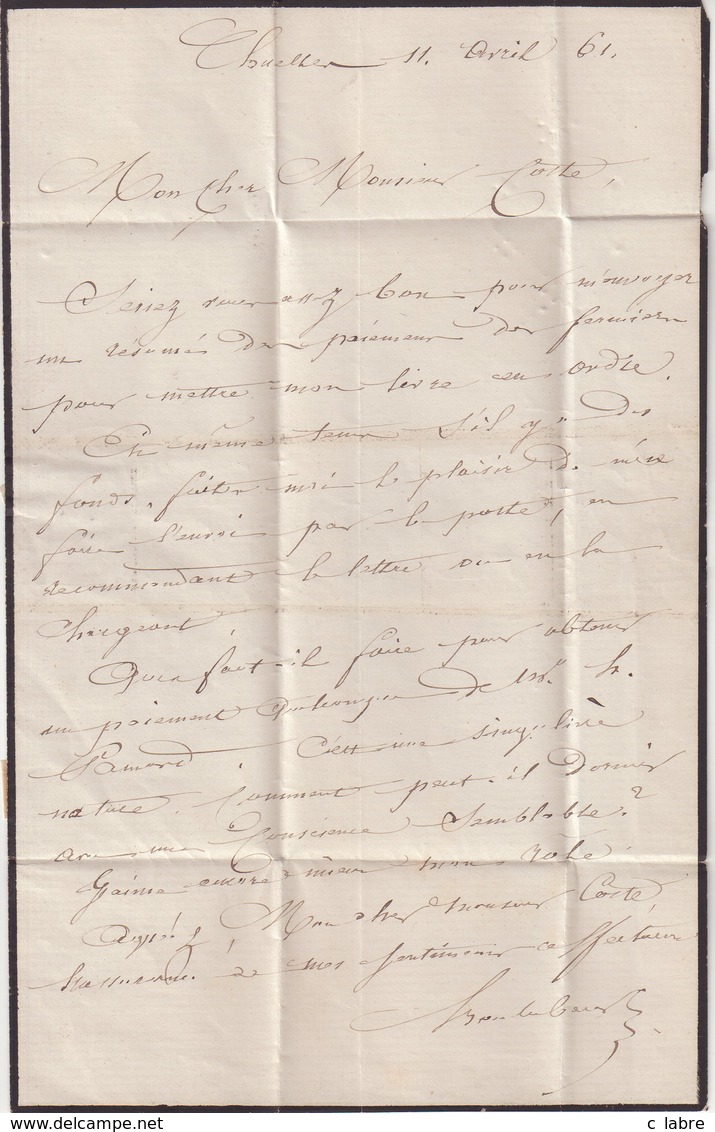 11. Avril 61.
Mon Cher Monsieur Coste,
Seriez vous assez bon pour m'envoyer
un résumé des paiements des fermiers
pour mettre mon livre en ordre.
En même temps s'il y a des
fonds, faites moi le plaisir de m'en
faire l'envoi par la poste, en
recommandant la lettre ou en la
chargeant.
Que faut-il faire pour obtenir
un paiement quelconque de Mr. h.
C'est une singulière
nature. Comment peut-il dormir
avec une Conscience Semblable?
J'aime encore mieux mon rôle.
Agréez, Mon cher Monsieur Coste,
l'assurance de mes sentiments affectueux
c labre